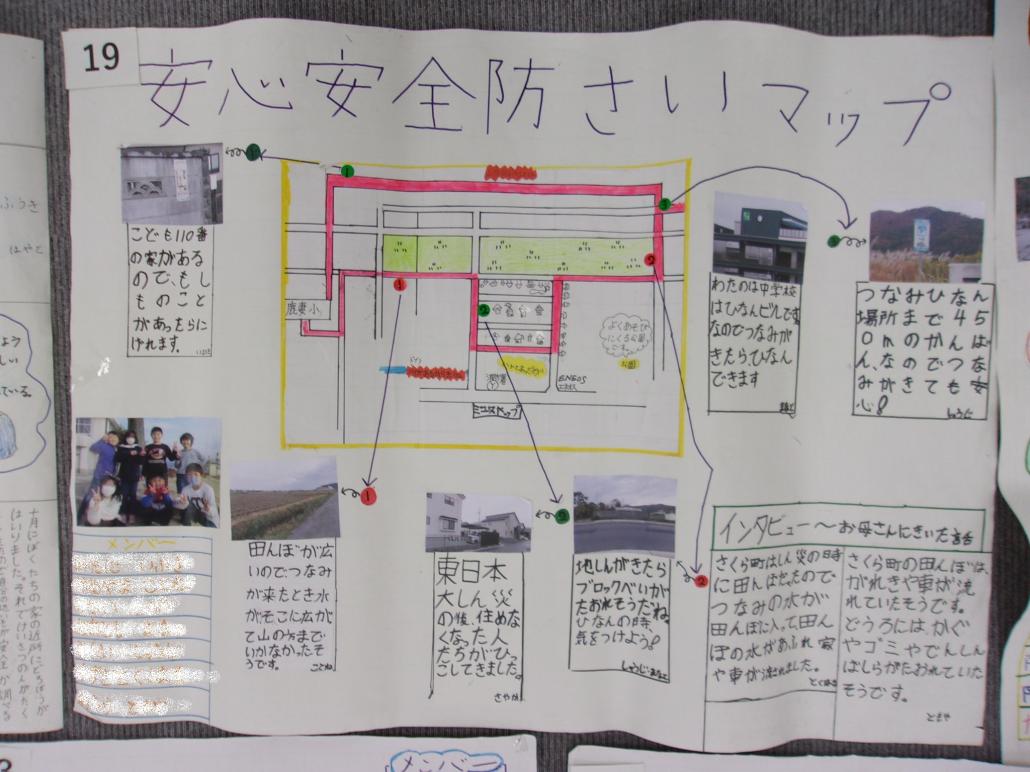 19
安心安全防さいマップ
こども110番
の家がある
ので、もし
ものこと
があったらに
げれます。
鹿妻小
よくあそび
にくる公園
です。
公園
ENEOS
わたのは中学校
はひなんビルです
なのでつなみが
きたら、ひなん
できます
つなみひなん
場所まで45
0mのかんば
ん、なのでつな
みがきても安
心!
しゅうじ
メンバー
田んぼが広
いので、つなみ
が来たとき水
がそこに広が
て山の方まで
いかなかったそ
うです。
ことね
東日本
大しん災
の後、住めな
くなった人
たちがひっ
こしてきました。
さやか
地しんがきたら
ブロックべいが
たおれそうだね。
ひなんの時
気をつけよう!
インタビュー〜お母さんにきいた話
さくら町はしん災の時
に田んぼだったので
つなみの水が田ん
ぼに入って、田ん
ぼの水があふれ家
や車が流れました。
さくら町の田んぼは、
がれきや車が流
れていたそうです。
どうろには、かぐ
やゴミやでんしん
ばしらがたおれていた
そうです。
ともや
メンバー